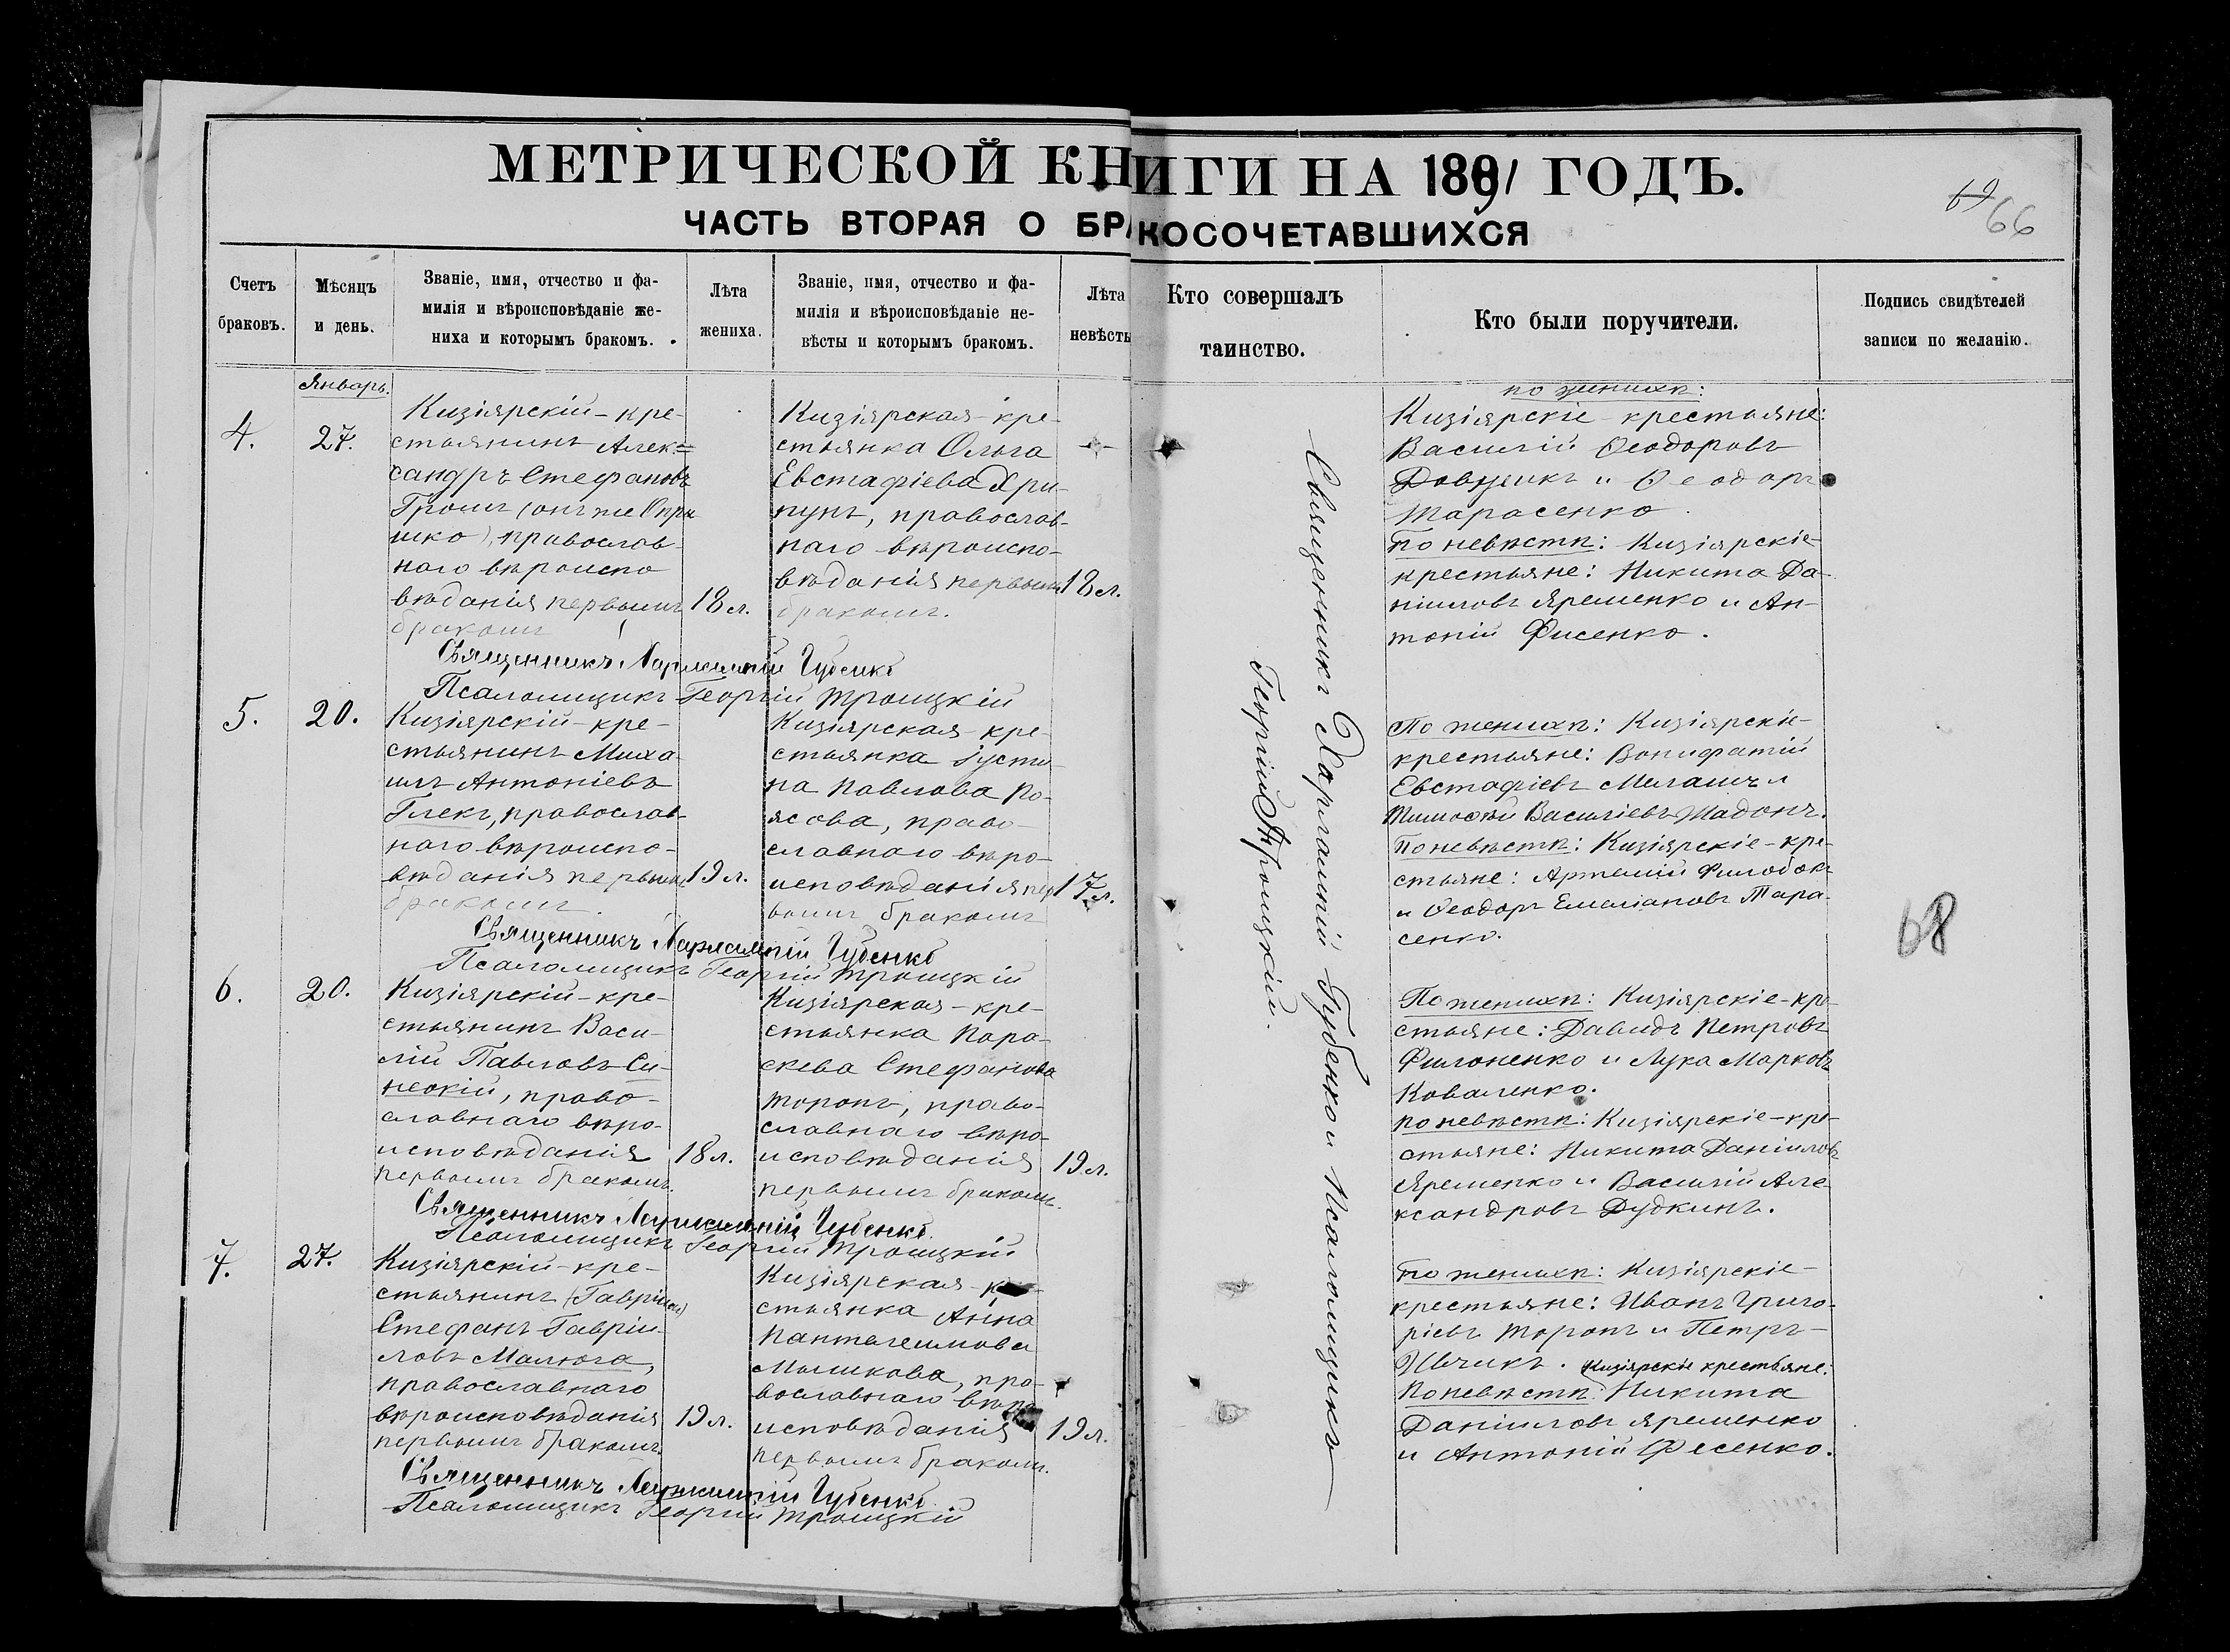 МЕТРИЧЕСКОЙ КНИГИ НА 1891 ГОДЪ.
ЧАСТЬ ВТОРАЯ О БРАКОСОЧЕТАВШИХСЯ
66
Счетъ
браковъ.
Мѣсяцъ
и день.
Званіе, имя, отчество и фа-
милія и вѣроисповѣданіе же-
ниха и которымъ бракомъ.
Лѣта
жениха.
Званіе, имя, отчество и фа-
милія и вѣроисповѣданіе не-
вѣсты и которымъ бракомъ.
Лѣта
невѣсты
Кто совершалъ
таинство.
Кто были поручители.
Подпись свидѣтелей
записи по желанію.
Январь.
4.
27.
Кизіярскій-кре-
стьянинъ Алек=
сандръ Стефановъ
Громъ (онъ же Опри
шко), православ-
наго вѣроиспо
вѣданія первымъ
бракомъ
18 л.
Кизіярская-кре-
стьянка Ольга
Евстафіева Хри-
пунъ, православ-
наго вѣроиспо-
вѣданія первымъ
бракомъ.
18 л.
по женихѣ:
Кизіярскіе-крестьяне:
Василій Ѳеодоровъ
и Ѳеодоръ
Тарасенко.
По невѣстѣ: Кизіярскіе-
крестьяне: Никита Да-
ніиловъ Яременко и Ан-
тоній Фисенко.
Священникъ Харлампій Губенко
Псаломщикъ Георгій Троицкій
5.
20.
Кизіярскій-кре-
стьянинъ Миха-
илъ Антоніевъ
Глекъ, православ-
наго вѣроиспо-
вѣданія первымъ
бракомъ.
19 л.
Кизіярская-кре-
стьянка Іусти-
на Павлова По-
ясова, право-
славнаго вѣро-
исповѣданія пер
вымъ бракомъ
17 л.
По женихѣ: Кизіярскіе-
крестьяне: Вонифатій
Евстафіевъ и
Тимоѳей Василіевъ Шадонъ.
По невѣстѣ: Кизіярскіе-кре-
стьяне: Артемій Филобокъ
и Ѳеодоръ Емеліановъ Тара-
сенко.
Священникъ Харлампій Губенко
Псаломщикъ Георгій Троицкій
6.
20.
Кизіярскій-кре-
стьянинъ Васи-
лій Павловъ Си-
неокій, право-
славнаго вѣро-
исповѣданія
первымъ бракомъ.
18 л.
Кизіярская-кре-
стьянка Пара-
скева Стефанова
Торопъ, право-
славнаго вѣро-
исповѣданія
первымъ бракомъ.
19 л.
По женихѣ: Кизіярскіе-кре-
стьяне: Давидъ Петровъ
Филоненко и Лука Марковъ
Коваленко.
По невѣстѣ: Кизіярскіе-кре-
стьяне: Никита Даніиловъ
Яременко и Василій Але-
ксандровъ Дудкинъ.
Священникъ Харлампій Губенко.
Псаломщикъ Георгій Троицкій
7.
27.
Кизіярскій-кре-
стьянинъ (Гавріилъ)
Стефанъ Гавріи-
ловъ Малюга,
православнаго
вѣроисповѣданія
первымъ бракомъ.
19 л.
Кизіярская-
стьянка Анна
Пантелеимова
Мышкова, пра-
вославнаго вѣро
исповѣданія
первымъ бракомъ.
19 л.
По женихѣ: Кизіярскіе-
крестьяне: Иванъ Григо-
ріевъ Торопъ и Петръ-
Ильчикъ. Кизіярскіе крестьяне:
По невѣстѣ: Никита
Даніиловъ Яременко
и Антоній Фесенко.
Священникъ Харлампій Губенко.
Псаломщикъ Георгій Троицкій
Священникъ Харлампій Губенко и Псаломщикъ
Георгій Троицкій.
68